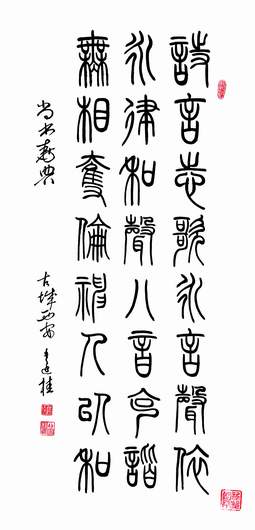 詩言志歌永言聲依
永律和聲八音克諧
無相奪倫神人以和
尚书尧典
古城西安